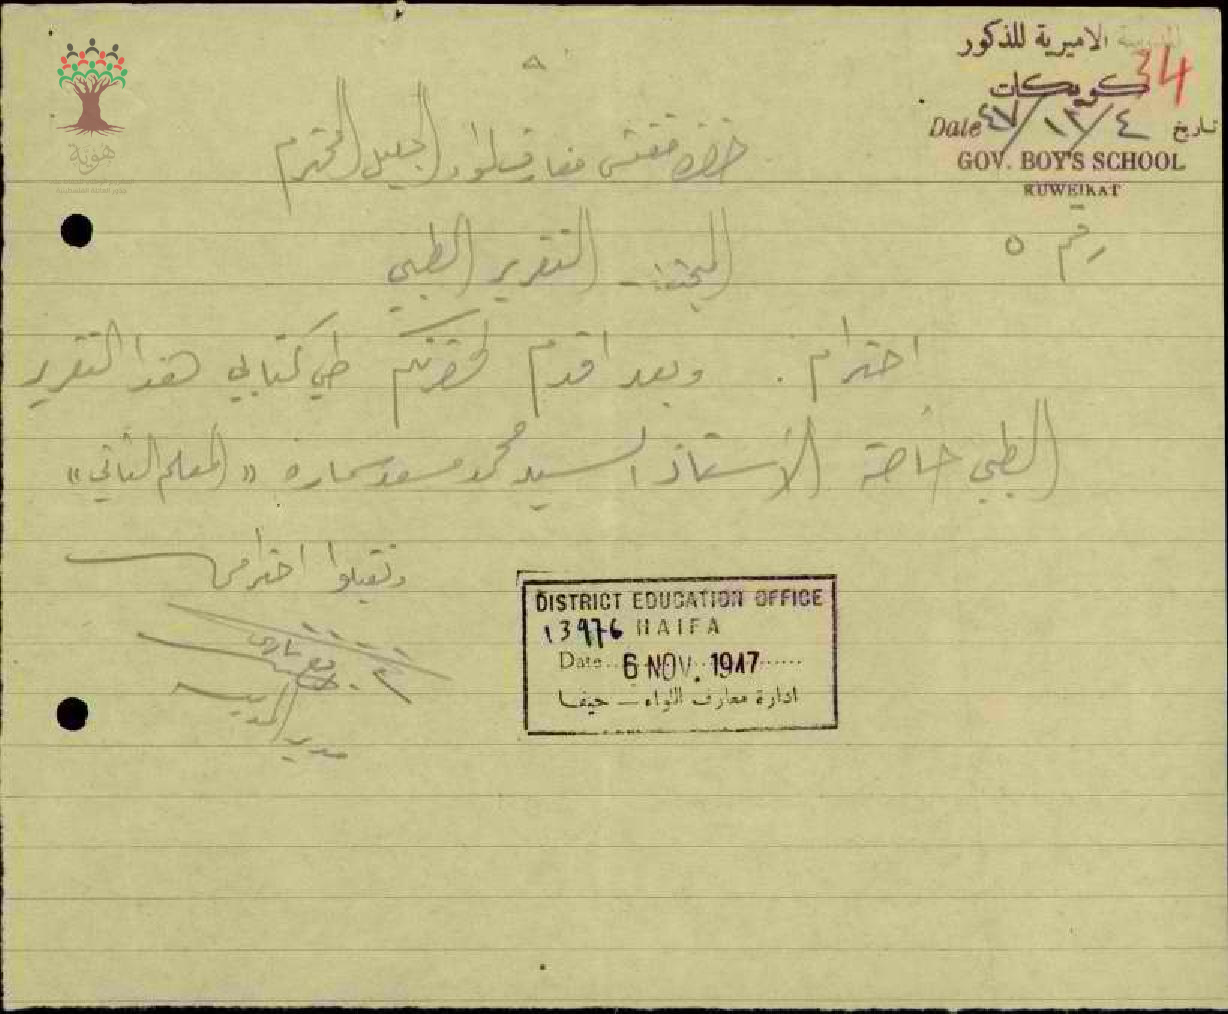 المدرسة الاميرية للذكور
34
كويكات
Date ٤٧/١٢/٤ تاريخ
GOV. BOY'S SCHOOL
KUWEIKAT
رقم ٥
حضرة مفتش معارف لواء الجليل المحترم
المبحث:- التقرير الطبي
احترام. وبعد اقدم لحضرتكم طي كتابي هذا التقرير
الطبي خاصة الأستاذ السيد محمد مسعد سماره "المعلم الثاني"
وتقبلوا احترامي
مدير المدرسة
DISTRICT EDUCATION OFFICE
13976 HAIFA
Date 6 NOV. 1947
ادارة معارف اللواء — حيفا
هوية